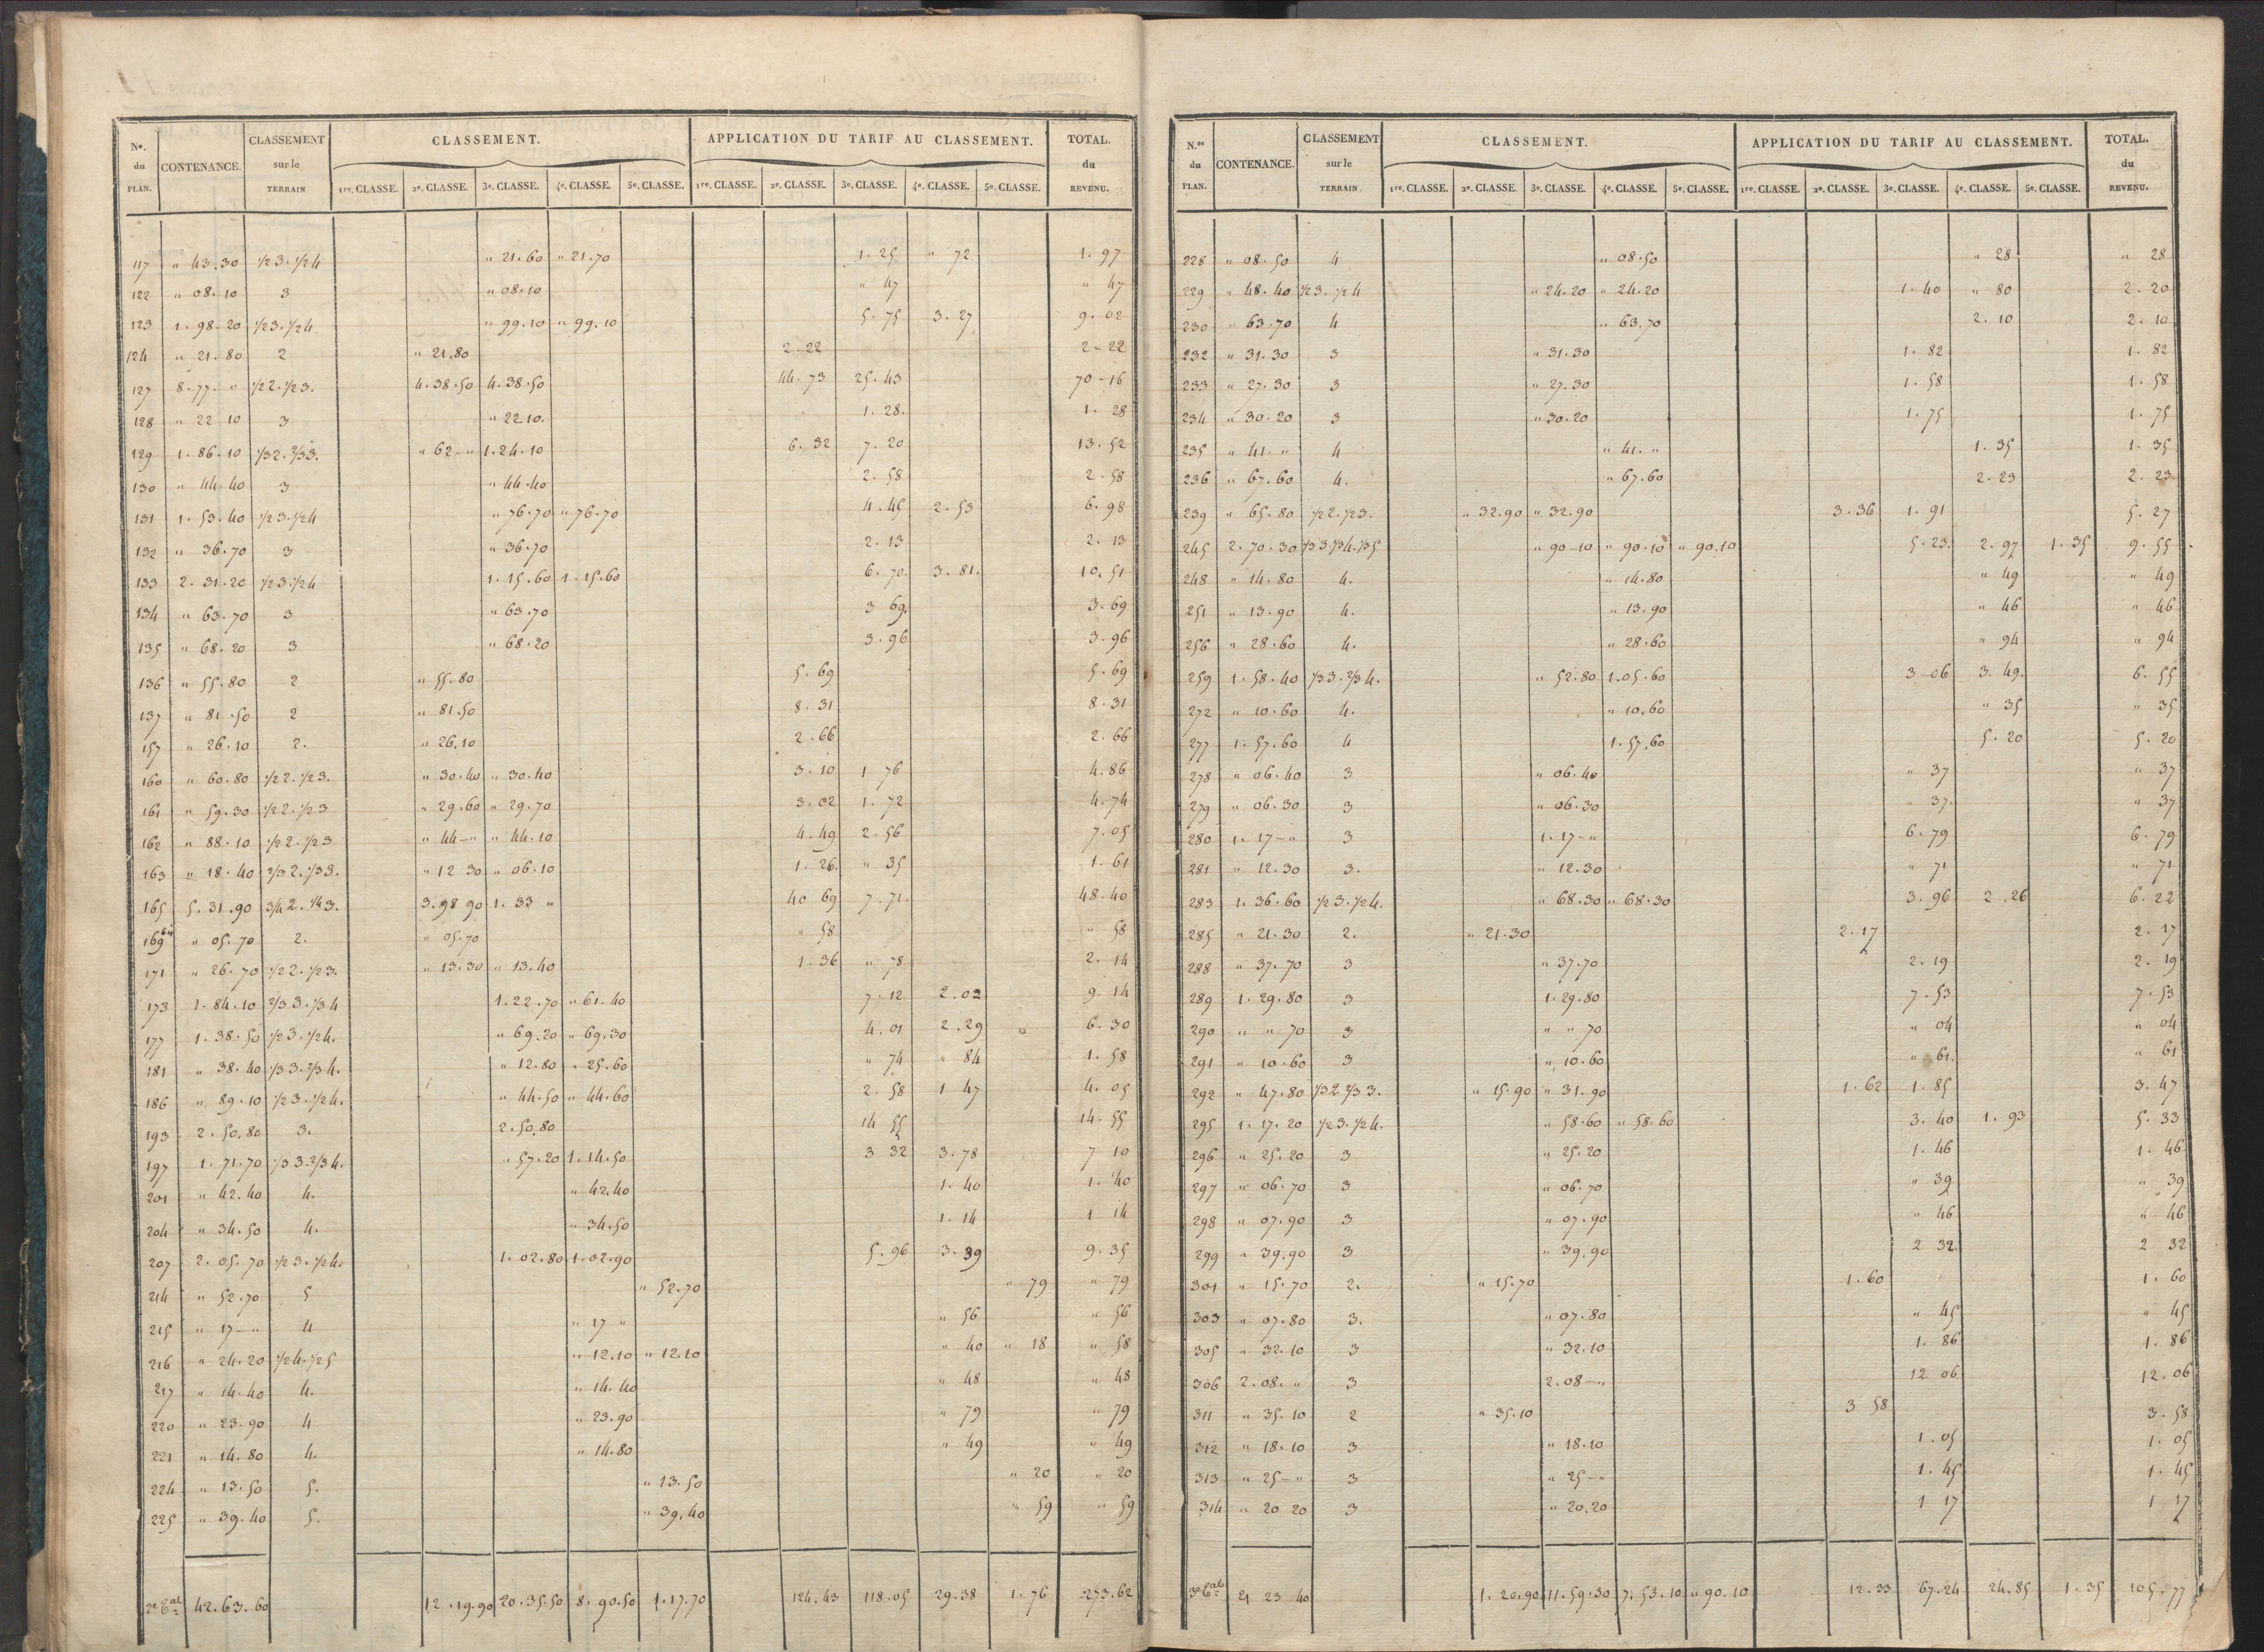 No. du PLAN. CONTENANCE. CLASSEMENT sur le TERRAIN CLASSEMENT. APPLICATION DU TARIF AU CLASSEMENT. TOTAL. du REVENU.
1re. CLASSE. 2e. CLASSE. 3e. CLASSE. 4e. CLASSE. 5e. CLASSE. 1re. CLASSE. 2e. CLASSE. 3e. CLASSE. 4e. CLASSE. 5e. CLASSE.
117 " 43.30 1/2 3. 1/2 4 " 21.60 " 21.70 1. 25 " 72 1. 97
122 " 08.10 3 " 08.10 " 47 " 47
123 1.98.20 1/2 3. 1/2 4 " 99.10 " 99.10 5.75 3.27 9.02
124 " 21.80 2 " 21.80 2.22 2-22
127 8.77. " 1/2 2. 1/2 3. 4.38.50 4.38.50 44.73 25.43 70-16
128 " 22 10 3 " 22 10. 1.28. 1.28
129 1.86.10 1/3 2. 2/3 3. " 62-" 1.24.10 6.32 7.20 13.52
130 " 44.40 3 " 44.40 2.58 2.58
131 1.53.40 1/2 3. 1/2 4 " 76.70 " 76.70 4.45 2.53 6.98
132 " 36.70 3 " 36.70 2.13 2.13
133 2.31.20 1/2 3. 1/2 4 1.15.60 1.15.60 6.70. 3.81. 10.51
134 " 63.70 3 " 63.70 3 69. 3.69
135 " 68.20 3 " 68.20 3.96 3.96
136 " 55.80 2 " 55.80 5.69 5.69
137 " 81.50 2 " 81.50 8.31 8.31
157 " 26.10 2. " 26.10 2.66 2.66
160 " 60.80 1/2 2. 1/2 3. " 30.40 " 30.40 3.10 1 76 4.86
161 " 59.30 1/2 2. 1/2 3 " 29.60 " 29.70 3.02 1.72 4.74
162 " 88.10 1/2 2. 1/2 3 " 44-" " 44.10 4.49 2.56 7.05
163 " 18.40 2/3 2. 1/3 3. " 12 30 " 06.10 1.26. " 35 1.61
165 5.31.90 3/4 2. 1/4 3. 3.98 90 1.33 " 40 69 7.71. 48.40
169 bis " 05.70 2. " 05.70 " 58 " 58
171 " 26.70 1/2 2. 1/2 3. " 13.30 " 13.40 1.36 " 78 2.14
173 1.84.10 2/3 3. 1/3 4 1.22.70 " 61.40 7.12 2.02 9.14
177 1.38.50 1/2 3. 1/2 4. " 69.20 " 69.30 4.01 2.29 6.30
181 " 38.40 1/3 3. 2/3 4. " 12.80 " 25.60 " 74 " 84 1.58
186 " 89.10 1/2 3. 1/2 4. " 44.50 " 44.60 2.58 1 47 4.05
193 2.50.80 3. 2.50.80 14 55 14.55
197 1.71.70 1/3 3. 2/3 4. " 57.20 1.14.50 3 32 3.78 7 10
201 " 42.40 4. " 42.40 1.40 1.40
204 " 34.50 4. " 34.50 1.14 1 14
207 2.05.70 1/2 3. 1/2 4. 1.02.80 1.02.90 5.96 3.39 9.35
214 " 52.70 5 " 52.70 " 79 " 79
215 " 17-" 4 " 17 " " 56 " 56
216 " 24.20 1/2 4. 1/2 5 " 12.10 " 12.10 " 40 " 18 " 58
217 " 14.40 4. " 14.40 " 48 " 48
220 " 23.90 4 " 23.90 " 79 " 79
221 " 14.80 4. " 14.80 " 49 " 49
224 " 13.50 5. " 13.50 " 20 " 20
225 " 39.40 5. " 39.40 " 59 " 59
2e tal 42.63.60 12.19.90 20.35.50 8.90.50 1.17.70 124.43 118.05 29.38 1.76 273.62
N.os du PLAN. CONTENANCE. CLASSEMENT sur le TERRAIN. CLASSEMENT. APPLICATION DU TARIF AU CLASSEMENT. TOTAL. du REVENU.
1re. CLASSE. 2e. CLASSE. 3e. CLASSE. 4e. CLASSE. 5e. CLASSE. 1re. CLASSE. 2e. CLASSE. 3e. CLASSE. 4e. CLASSE. 5e. CLASSE.
228 " 08.50 4 " 08.50 " 28 " 28
229 " 48.40 1/2 3. 1/2 4 " 24.20 " 24.20 1.40 " 80 2.20
230 " 63.70 4 " 63.70 2.10 2.10
232 " 31.30 3 " 31.30 1.82 1.82
233 " 27.30 3 " 27.30 1.58 1.58
234 " 30.20 3 " 30.20 1.75 1.75
235 " 41. " 4 " 41. " 1.35 1.35
236 " 67.60 4. " 67.60 2.23 2.23
239 " 65.80 1/2 2. 1/2 3. " 32.90 " 32.90 3.36 1.91 5.27
245 2.70.30 1/3 3. 1/3 4. 1/3 5 " 90-10 " 90.10 " 90.10 5.23. 2.97 1.35 9.55
248 " 14.80 4. " 14.80 " 49 " 49
251 " 13.90 4. " 13.90 " 46 " 46
256 " 28.60 4. " 28.60 " 94 " 94
259 1.58.40 1/3 3. 2/3 4. " 52.80 1.05.60 3-06 3.49. 6.55
272 " 10.60 4. " 10.60 " 35 " 35
277 1.57.60 4 1.57.60 5.20 5.20
278 " 06.40 3 " 06.40 " 37 " 37
279 " 06.30 3 " 06.30 " 37. " 37
280 1.17-" 3 1.17-" 6.79 6.79
281 " 12.30 3. " 12.30 " 71 " 71
283 1.36.60 1/2 3. 1/2 4. " 68.30 " 68.30 3.96 2.26 6.22
285 " 21.30 2. " 21.30 2.17 2.17
288 " 37.70 3 " 37.70 2.19 2.19
289 1.29.80 3 1.29.80 7.53 7.53
290 " " 70 3 " " 70 " 04 " 04
291 " 10.60 3 " 10.60 " 61. " 61
292 " 47.80 1/3 2 2/3 3. " 15.90 " 31.90 1.62 1.85 3.47
295 1.17.20 1/2 3. 1/2 4. " 58.60 " 58.60 3.40 1.93 5.33
296 " 25.20 3 " 25.20 1.46 1.46
297 " 06.70 3 " 06.70 " 39 " 39
298 " 07.90 3 " 07.90 " 46 " 46
299 " 39.90 3 " 39.90 2 32. 2 32
301 " 15.70 2. " 15.70 1.60 1.60
303 " 07.80 3. " 07.80 " 45 " 45
305 " 32.10 3 " 32.10 1.86 1.86
306 2.08. " 3 2.08-" 12 06 12.06
311 " 35.10 2 " 35.10 3 58 3.58
312 " 18.10 3 " 18.10 1.05 1.05
313 " 25-" 3 " 25-" 1.45 1.45
314 " 20 20 3 " 20.20 1 17 1 17
3e tal 21 23 40 1.20.90 11.59.30 7.53.10 " 90.10 12.33 67.24 24.85 1.35 105.77